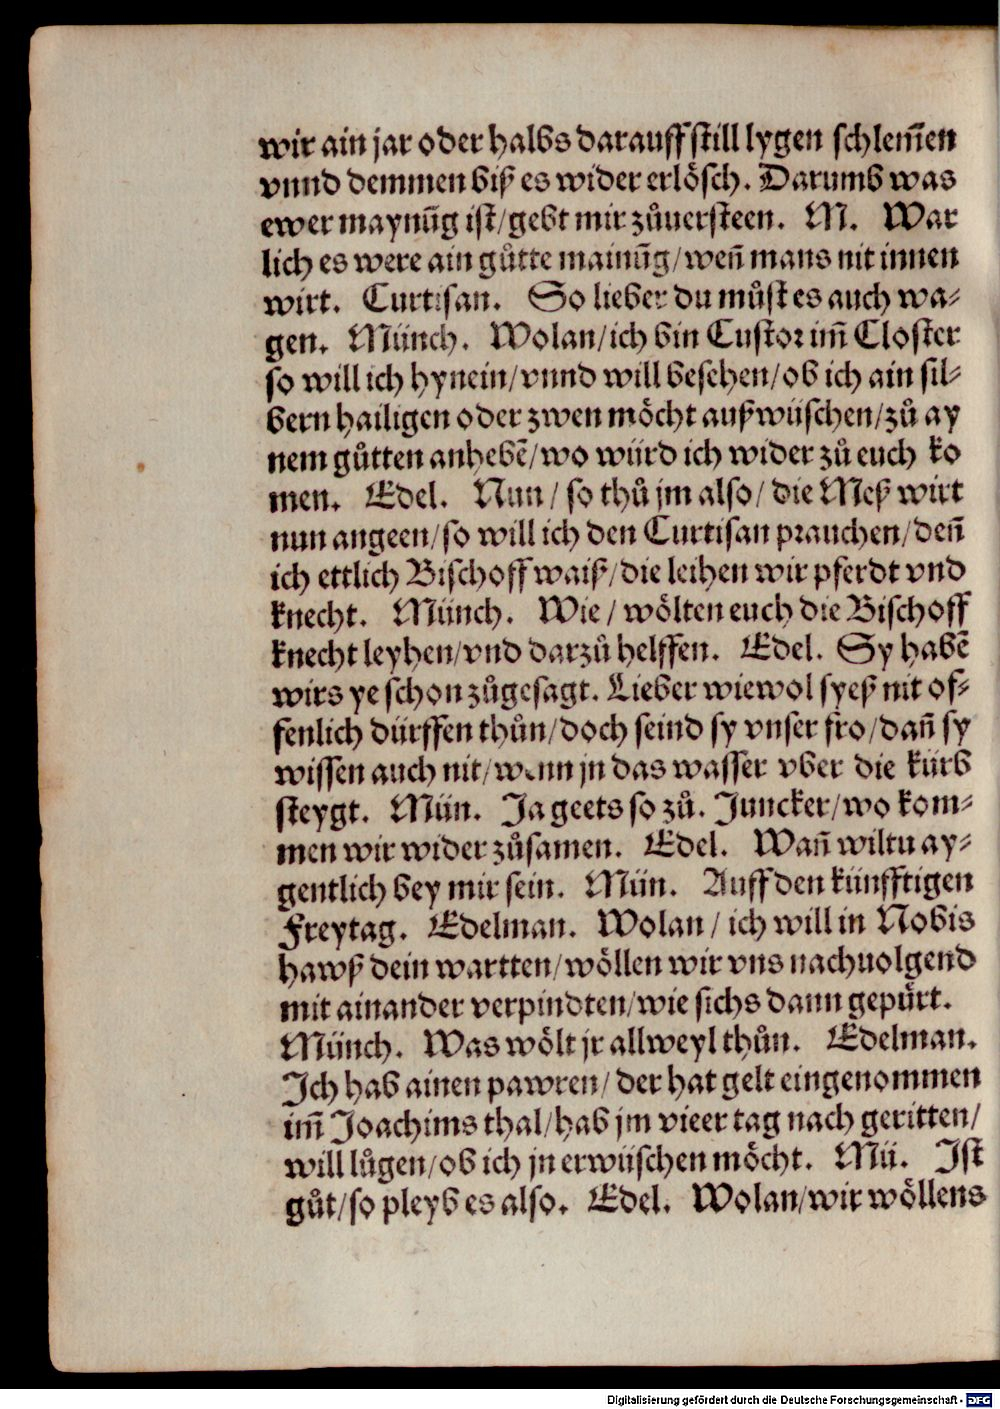 wir ain jar oder halbs darauff still lygen schlem̃en
vnnd demmen biß es wider erlösch. Darumb was
ewer maynũg ist/gebt mir zůuersteen. M. War
lich es were ain gůtte mainũg/weñ mans nit innen
wirt. Curtisan. So lieber du můst es auch wa-
gen. Münch. Wolan/ich bin Custor im̃ Closter
so will ich hynein/vnnd will besehen/ob ich ain sil-
bern hailigen oder zwen möcht außwüschen/zů ay
nem gůtten anhebẽ/wo würd ich wider zů euch ko
men. Edel. Nun/ so thů jm also/ die Meß wirt
nun angeen/so will ich den Curtisan prauchen/deñ
ich ettlich Bischoff waiß/die leihen wir pferdt vnd
knecht. Münch. Wie/ wölten euch die Bischoff
knecht leyhen/vnd darzů helffen. Edel. Sy habẽ
wirs ye schon zůgesagt. Lieber wiewol syeß nit of-
fenlich dürffen thůn/doch seind sy vnser fro/dañ sy
wissen auch nit/wenn jn das wasser vber die kürb
steygt. Mün. Ja geets so zů. Juncker/wo kom-
men wir wider zůsamen. Edel. Wañ wiltu ay-
gentlich bey mir sein. Mün. Auff den künfftigen
Freytag. Edelman. Wolan/ ich will in Nobis
hawß dein wartten/wöllen wir vns nachuolgend
mit ainander verpindten/wie sichs dann gepürt.
Münch. Was wölt jr allweyl thůn. Edelman.
Ich hab ainen pawren/ der hat gelt eingenommen
im̃ Joachims thal/hab jm vieer tag nach geritten/
will lůgen/ob ich jn erwüschen möcht. Mü. Ist
gůt/so pleyb es also. Edel. Wolan/wir wöllens
Digitalisierung gefördert durch die Deutsche Forschungsgemeinschaft - DFG